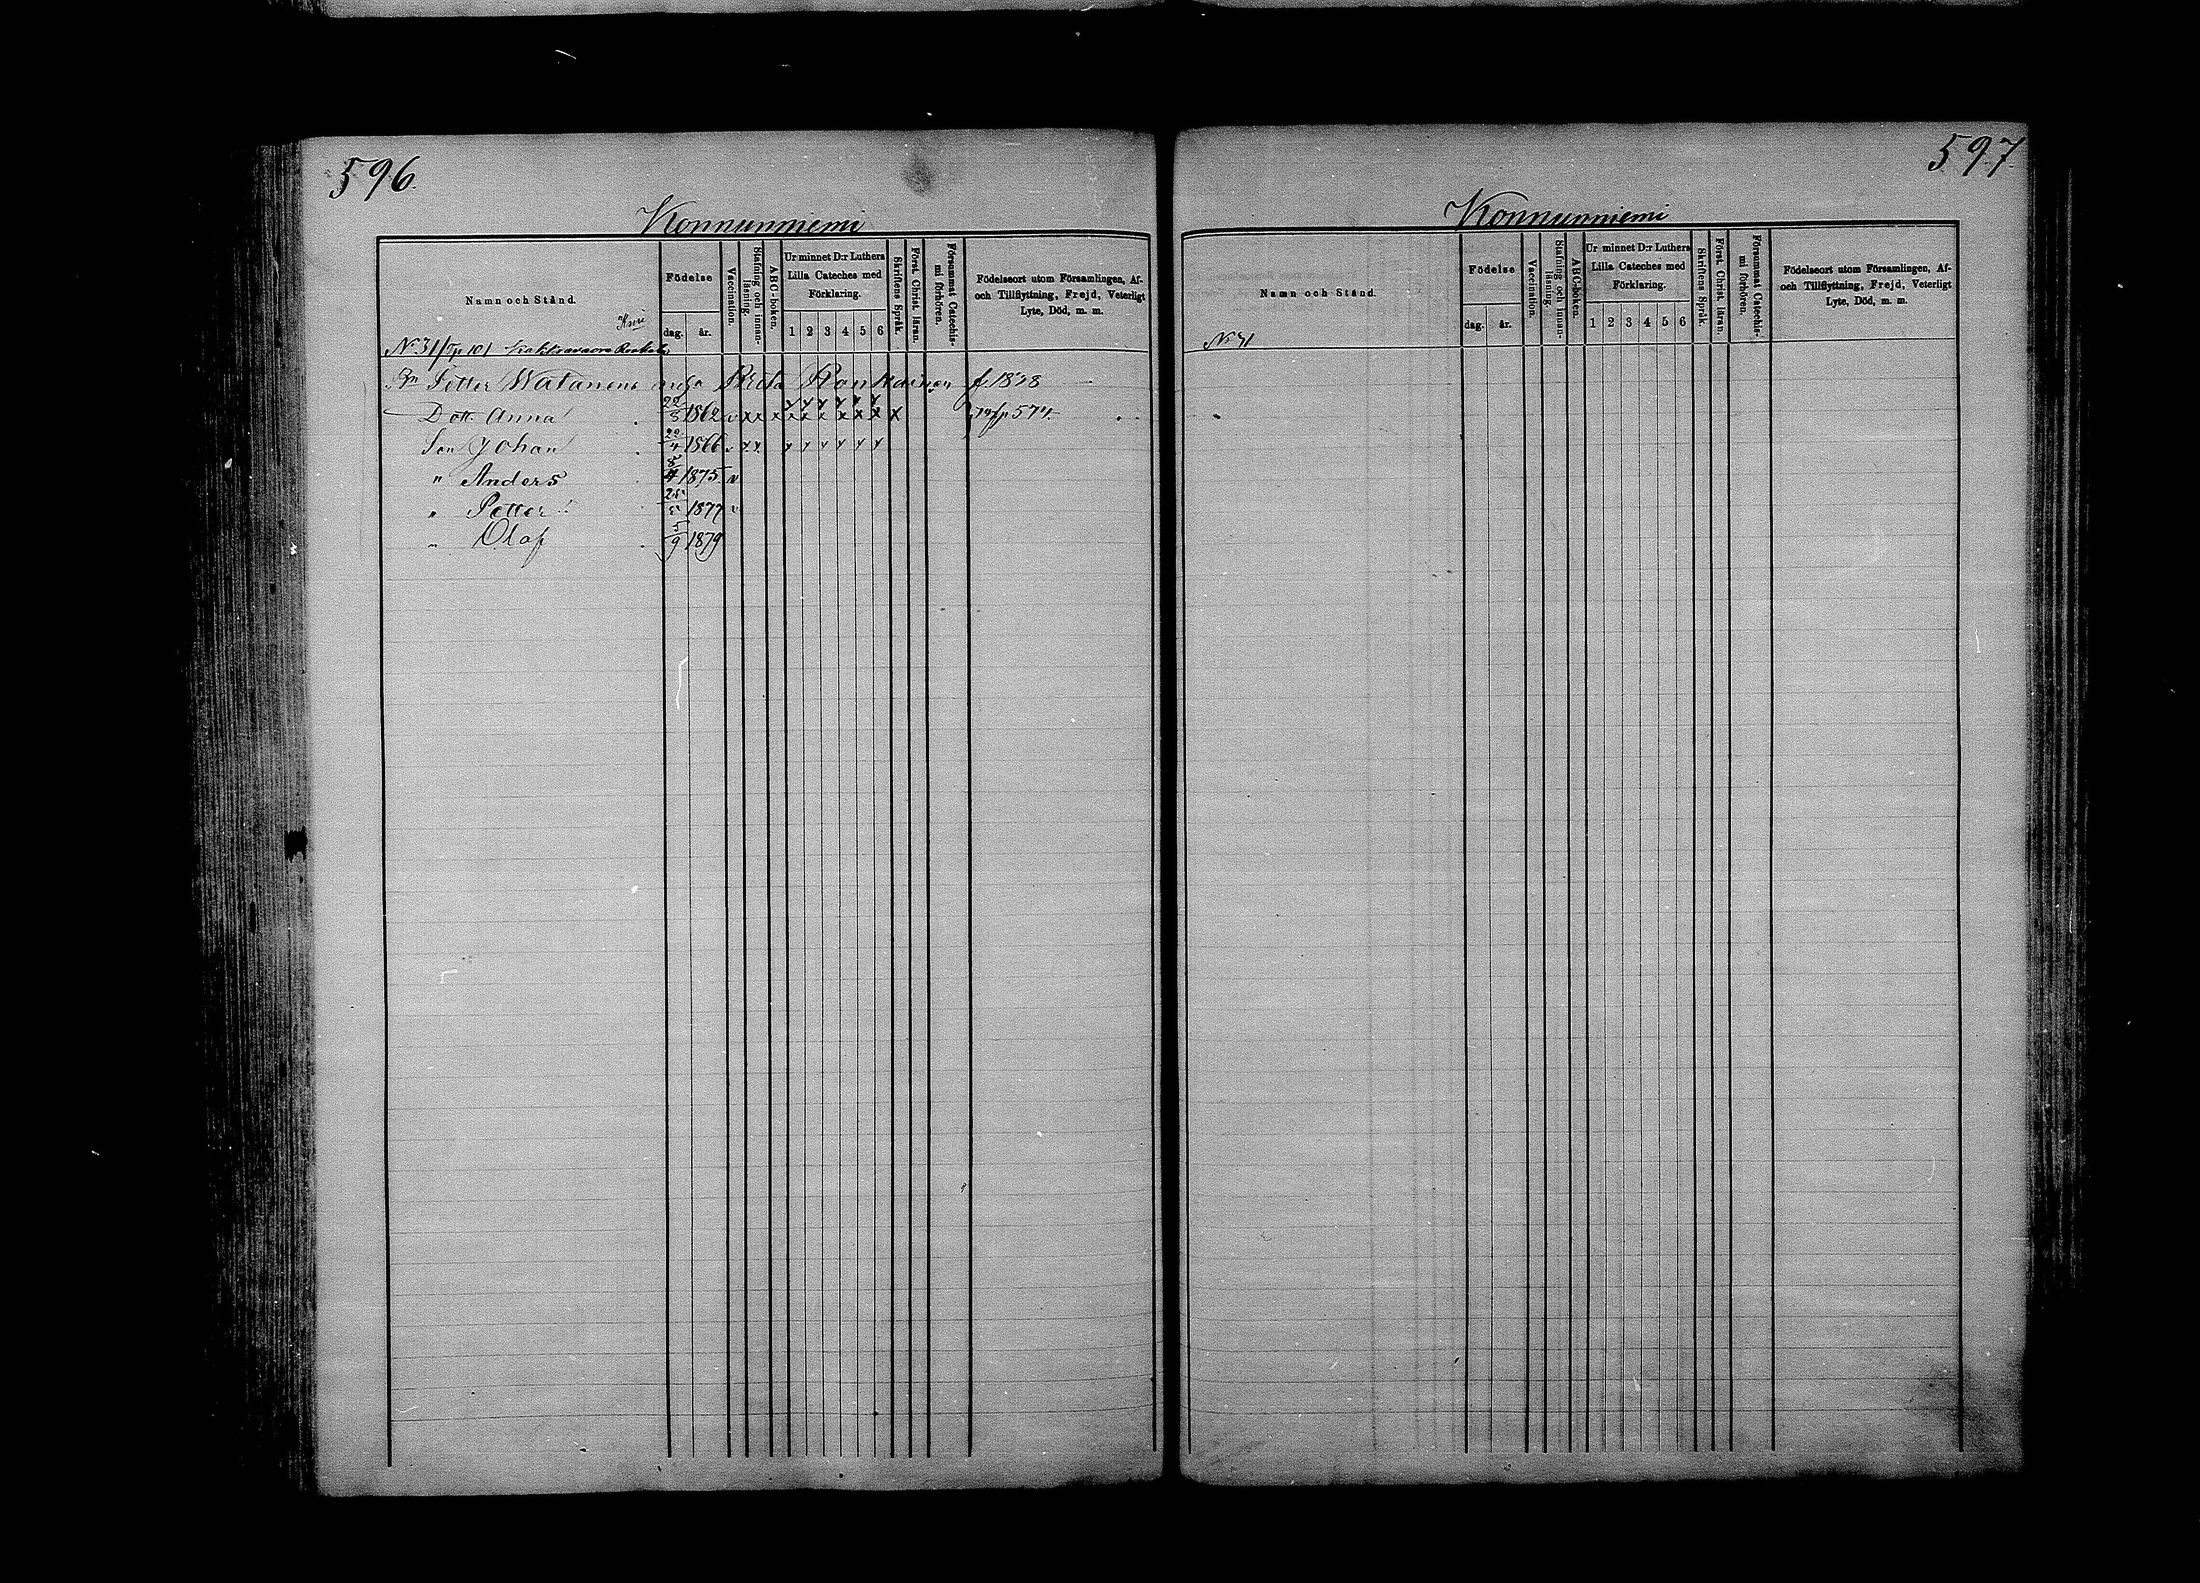 596.
Konnunniemi
Namn och Stånd.
Födelse
dag. år.
Vaccination.
Stafning och innanläsning.
ABC-boken.
Ur minnet D:r Luthers
Lilla Cateches med
Förklaring.
1 2 3 4 5 6
Skriftens Språk.
Först. Christ. läran.
Försummat Catechismi förhören.
Födelseort utom Församlingen, Af-
och Tillflyttning, Frejd, Veterligt
Lyte, Död, m. m.
No 31
Bn Petter Watanens Brita Ronkainen f. 1838
Dott. Anna 22/8 1862 v x x x x x x x x x x p 574
Son Johan 20/4 1866 v x x v v v v v v
" Anders 8/4 1875 v
" Petter 1877 v
" Olof 5/9 1879
597.
Konnunniemi
Namn och Stånd.
Födelse
dag. år.
Vaccination.
Stafning och innanläsning.
ABC-boken.
Ur minnet D:r Luthers
Lilla Cateches med
Förklaring.
1 2 3 4 5 6
Skriftens Språk.
Först. Christ. läran.
Försummat Catechismi förhören.
Födelseort utom Församlingen, Af-
och Tillflyttning, Frejd, Veterligt
Lyte, Död, m. m.
No 31